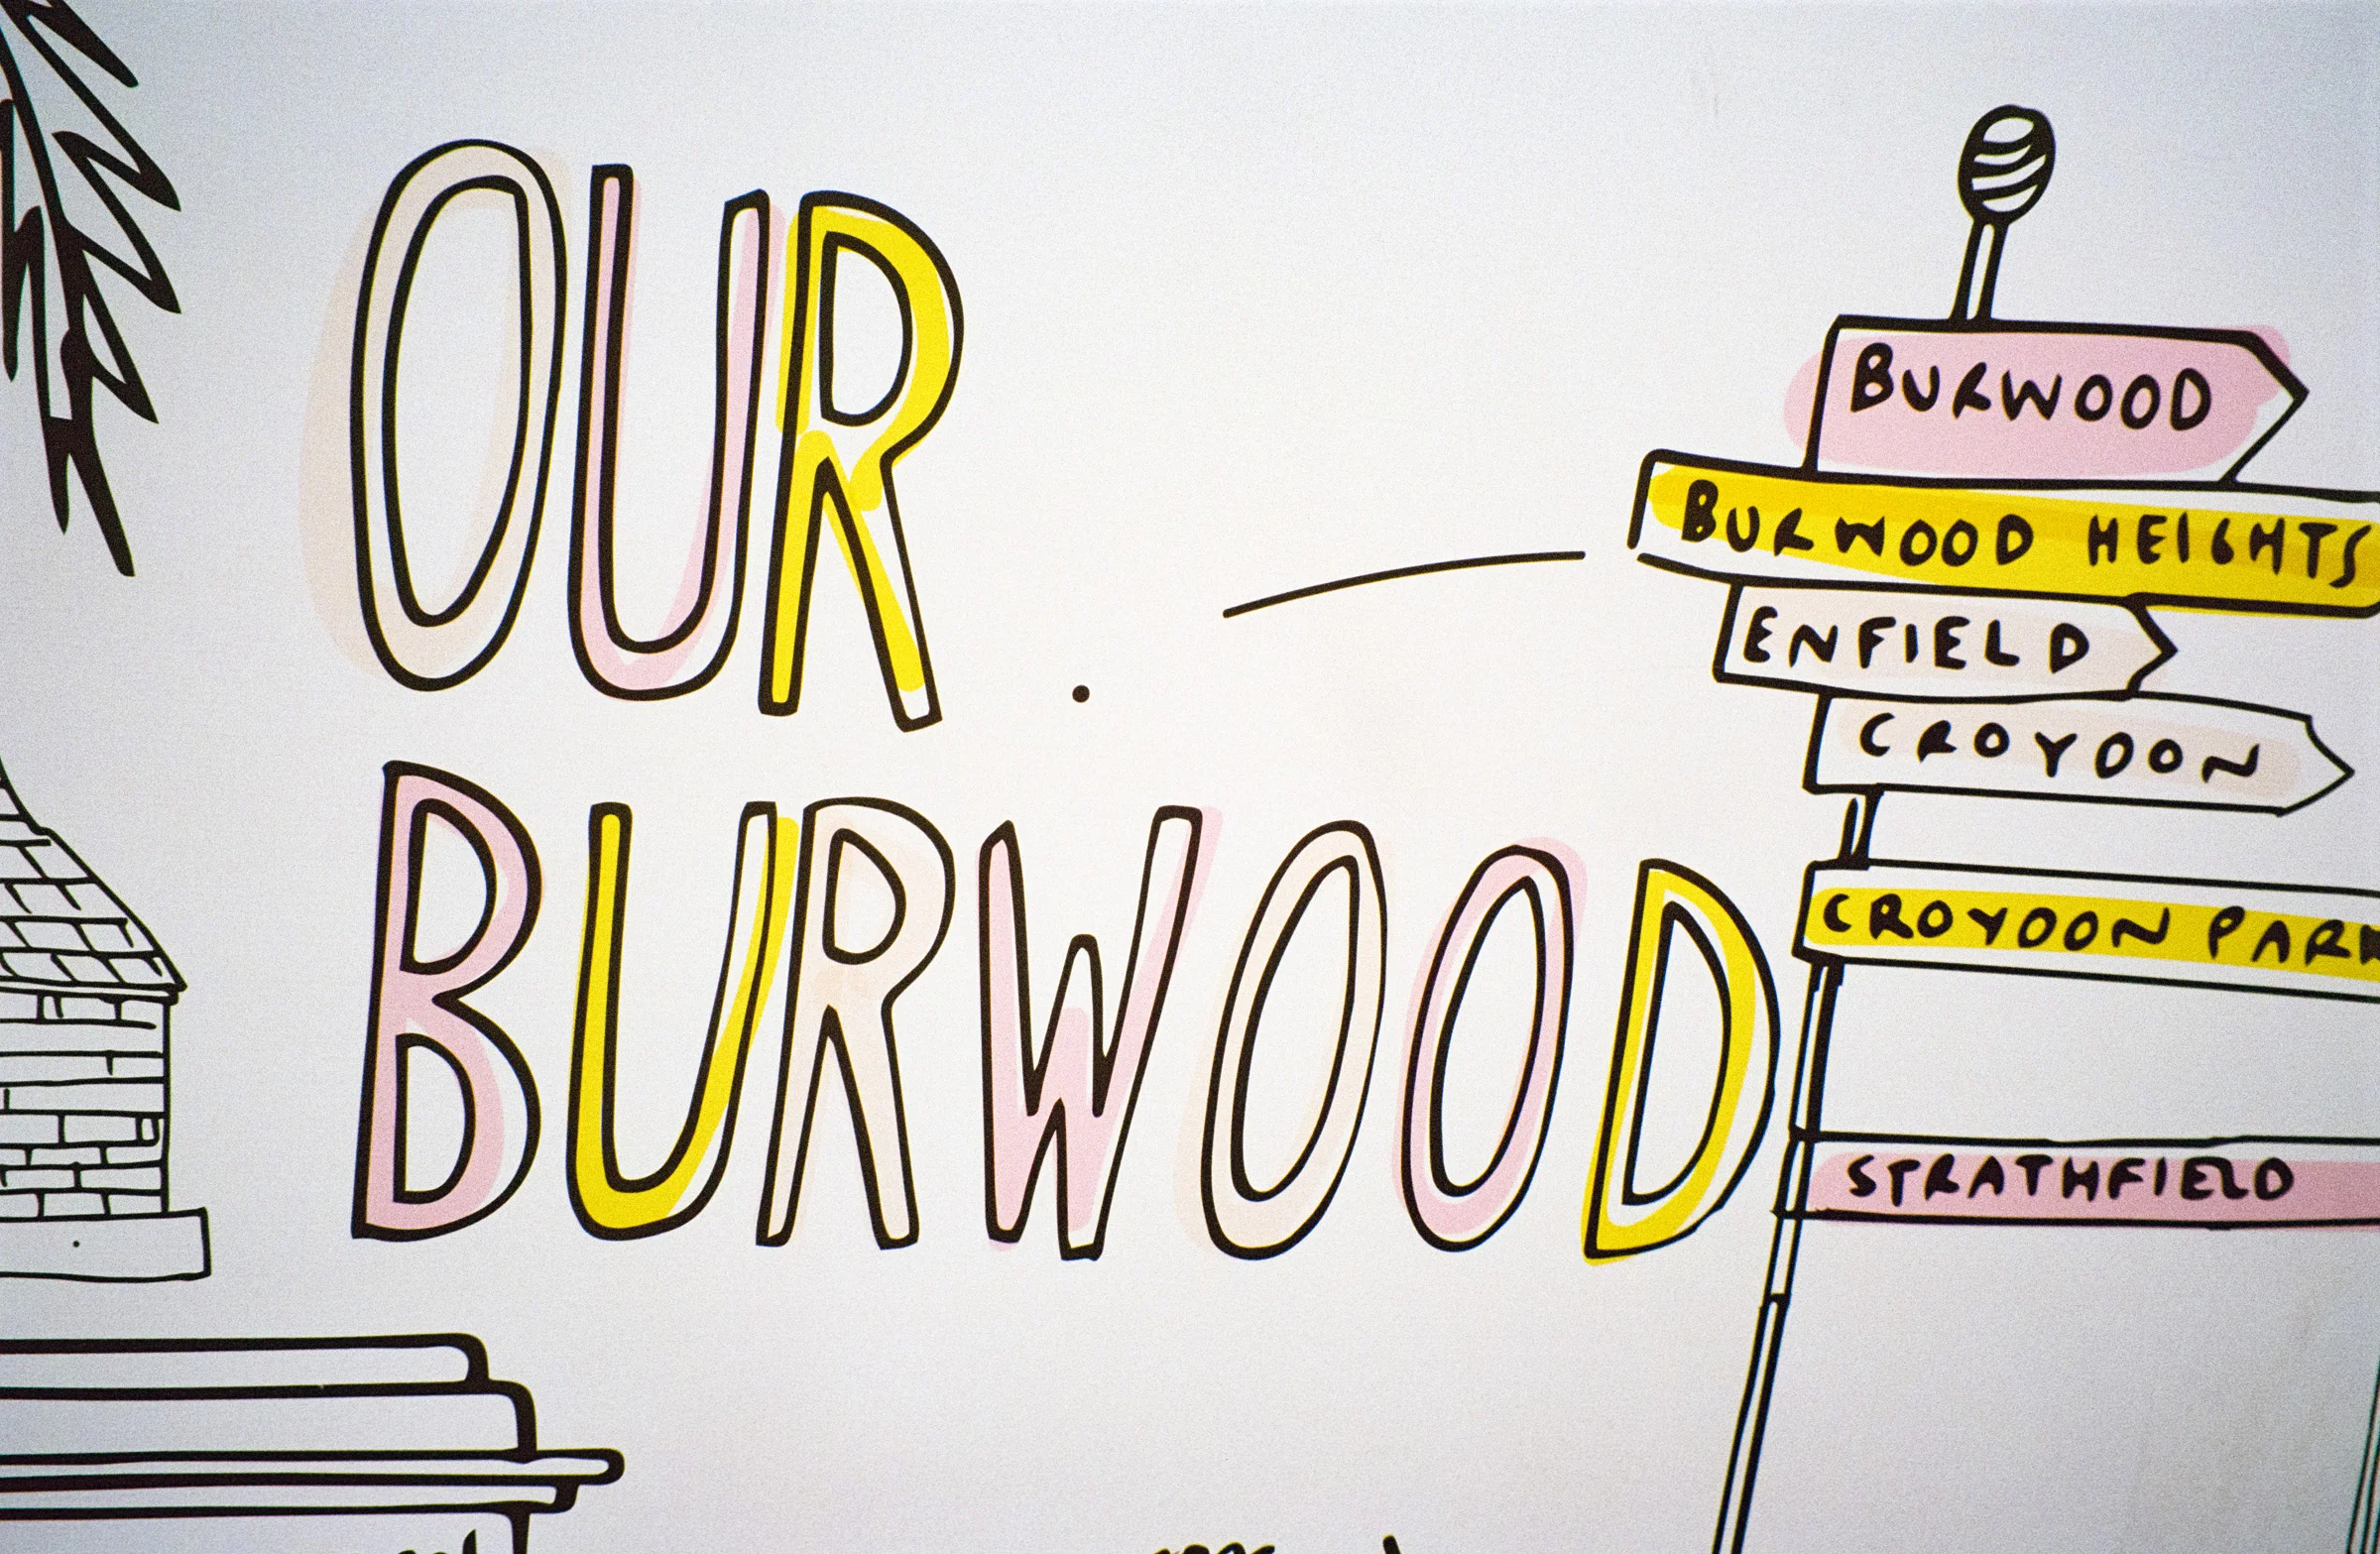 OUR
BURWOOD
BURWOOD
BURWOOD HEIGHTS
ENFIELD
CROYDON
CROYDON PARK
STRATHFIELD